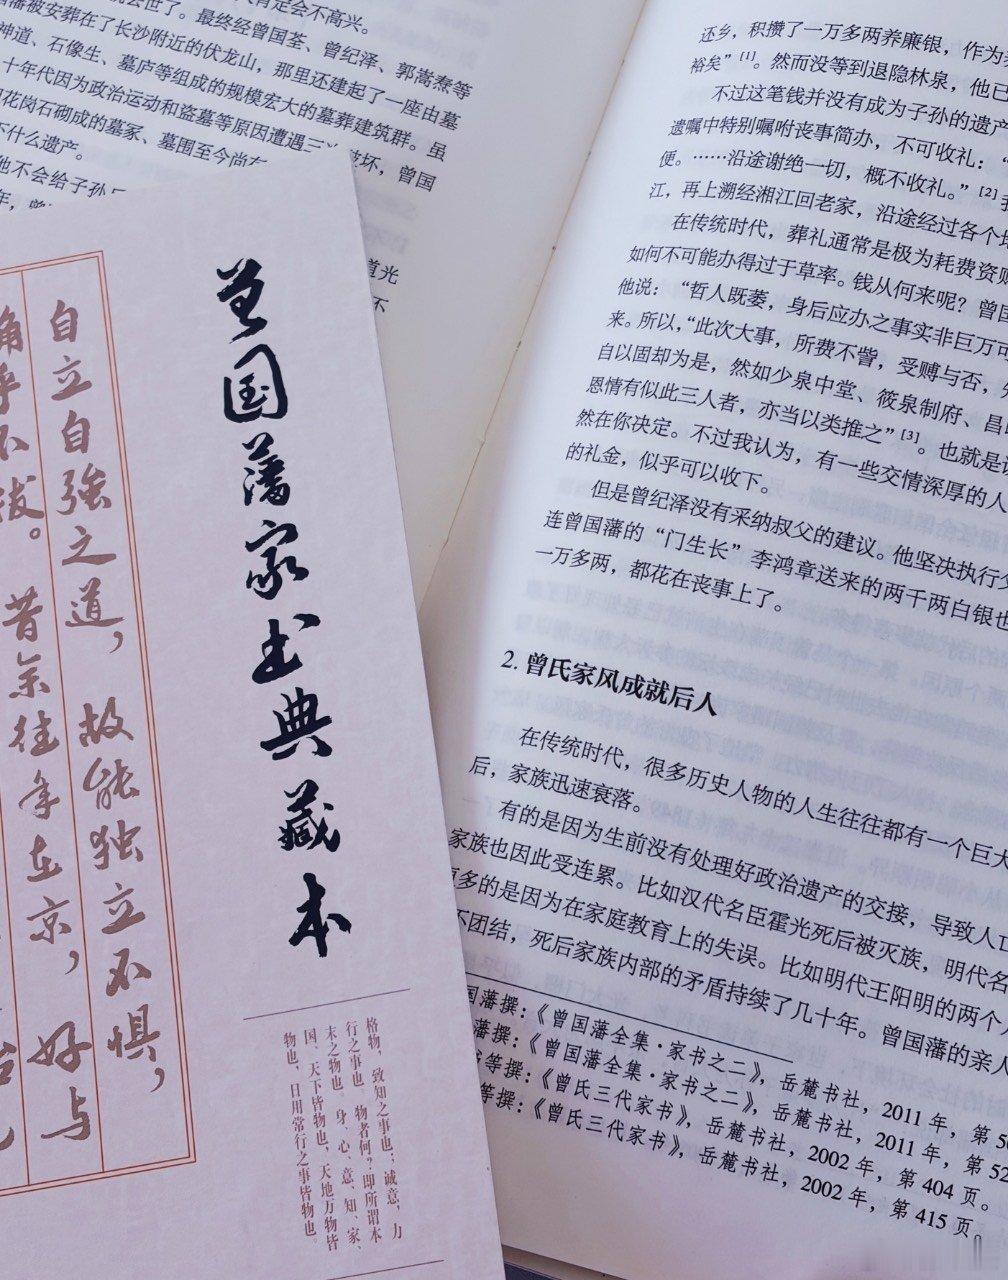 肯定会不高兴。
就去世了。最终经曾国荃、曾纪泽、郭嵩焘等
藩被安葬在了长沙附近的伏龙山，那里还建起了一座由墓
神道、石像生、墓庐等组成的规模宏大的墓葬建筑群。虽
十年代因为政治运动和盗墓等原因遭遇三次破坏，曾国
花岗石砌成的墓冢、墓围至今尚存
什么遗产。
他不会给子孙
年，曾
道光
不
还乡，积攒了一万多两养廉银，作为
裕矣”[1]。然而没等到退隐林泉，他已
不过这笔钱并没有成为子孙的遗产
遗嘱中特别嘱咐丧事简办，不可收礼：“
便。……沿途谢绝一切，概不收礼。”[2]
江，再上溯经湘江回老家，沿途经过各个
在传统时代，葬礼通常是极为耗费资
如何不可能办得过于草率。钱从何来呢？曾国
他说：“哲人既萎，身后应办之事实非巨万可
来。所以，“此次大事，所费不訾，受赙与否，
自以固却为是，然如少泉中堂、筱泉制府、昌
恩情有似此三人者，亦当以类推之”[3]。也就是说
然在你决定。不过我认为，有一些交情深厚的人
的礼金，似乎可以收下。
但是曾纪泽没有采纳叔父的建议。他坚决执行父
连曾国藩的“门生长”李鸿章送来的两千两白银也
一万多两，都花在丧事上了。
2. 曾氏家风成就后人
在传统时代，很多历史人物的人生往往都有一个巨大
后，家族迅速衰落。
有的是因为生前没有处理好政治遗产的交接，导致人亡
家族也因此受连累。比如汉代名臣霍光死后被灭族，明代名
更多的是因为在家庭教育上的失误。比如明代王阳明的两个
不团结，死后家族内部的矛盾持续了几十年。曾国藩的亲人
国藩撰：《曾国藩全集·家书之二》，岳麓书社，2011年，第50
藩撰：《曾国藩全集·家书之二》，岳麓书社，2011年，第52
等撰：《曾氏三代家书》，岳麓书社，2002年，第404页。
等撰：《曾氏三代家书》，岳麓书社，2002年，第415页。
曾国藩家书典藏本
自立自強之道，
故能独立不惧，
确乎不拔。昔余往年在京，好与
格物，致知之事也；诚意，力
行之事也。物者何？即所谓本
末之物也。身、心、意、知、家、
国、天下皆物也，天地万物皆
物也，日用常行之事皆物也。